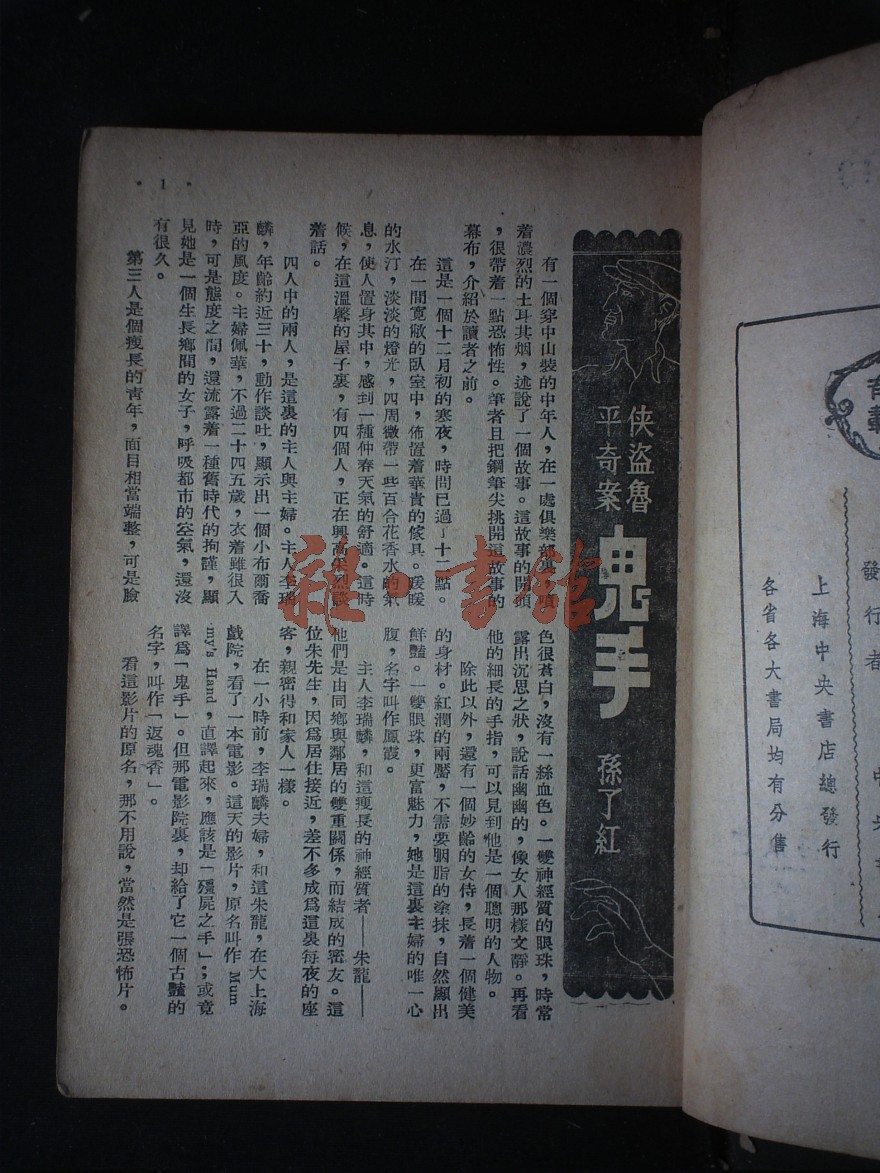 上海中央書店總發行
各省各大書局均有分售
發行者
俠盜魯
平奇案
鬼手
孫了紅
有一個穿中山裝的中年人,在一處俱樂部裏,噴
着濃烈的土耳其烟,述說了一個故事。這故事的開頭
,很帶着一點恐怖性。筆者且把鋼筆尖挑開這故事的
幕布,介紹於讀者之前。
這是一個十二月初的寒夜,時間已過了十二點。
在一間寬敞的臥室中,佈置着華貴的傢具。暖暖
的水汀,淡淡的燈光,四周微帶一些百合花香水的氣
息,使人置身其中,感到一種仲春天氣的舒適。這時
候,在這溫馨的屋子裏,有四個人,正在興高采烈談
着話。
四人中的兩人,是這裏的主人與主婦。主人李瑞
麟,年齡約近三十,動作談吐,顯示出一個小布爾喬
亞的風度。主婦佩華,不過二十四五歲,衣着雖很入
時,可是態度之間,還流露着一種舊時代的拘謹,顯
見她是一個生長鄉間的女子,呼吸都市的空氣,還沒
有很久。
第三人是個瘦長的青年,面目相當端整,可是臉
色很蒼白,沒有一絲血色。一雙神經質的眼珠,時常
露出沉思之狀,說話幽幽的,像女人那樣文靜。再看
他的細長的手指,可以見到他是一個聰明的人物。
除此以外,還有一個妙齡的女侍,長着一個健美
的身材。紅潤的兩靨,不需要胭脂的塗抹,自然顯出
鮮豔。一雙眼珠,更富魅力,她是這裏主婦的唯一心
腹,名字叫作鳳霞。
主人李瑞麟,和這瘦長的神經質者——朱龍——
他們是由同鄉與鄰居的雙重關係,而結成的密友。這
位朱先生,因爲居住接近,差不多成爲這裏每夜的座
客,親密得和家人一樣。
在一小時前,李瑞麟夫婦,和這朱龍,在大上海
戲院,看了一本電影。這天的影片,原名叫作 Mum
my's Hand,直譯起來,應該是「殭屍之手」;或竟
譯爲「鬼手」。但那電影院裏,却給了它一個古豔的
名字,叫作「返魂香」。
看這影片的原名,那不用說,當然是張恐怖片。
• 1 •
雜·書館